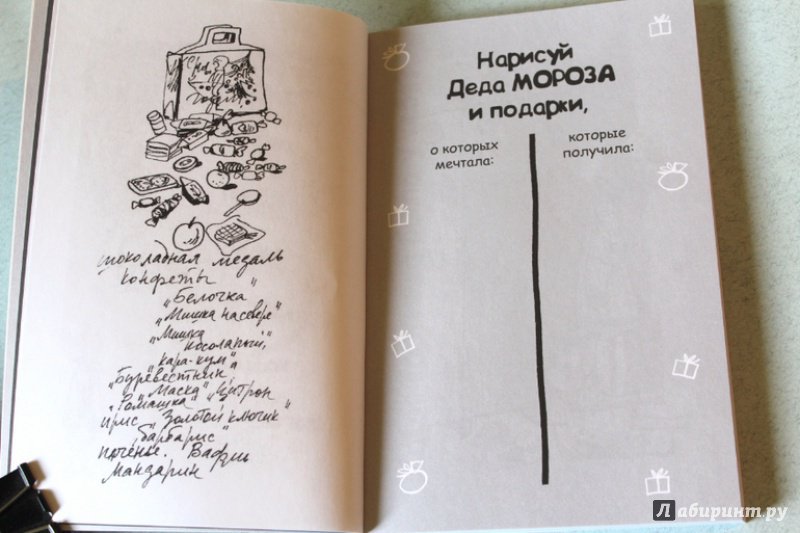 С Но
Годом
шоколадная медаль
конфеты
"Белочка"
"Мишка на севере"
"Мишка
косолапый",
"Кара-кум"
"Буревестник"
"Маска" "Цитрон"
"Ромашка"
ирис "Золотой ключик"
"барбарис"
печенье. Вафли
Мандарин
Нарисуй
Деда МОРОЗА
и подарки,
о которых
мечтала:
которые
получила:
Лабиринт.ру